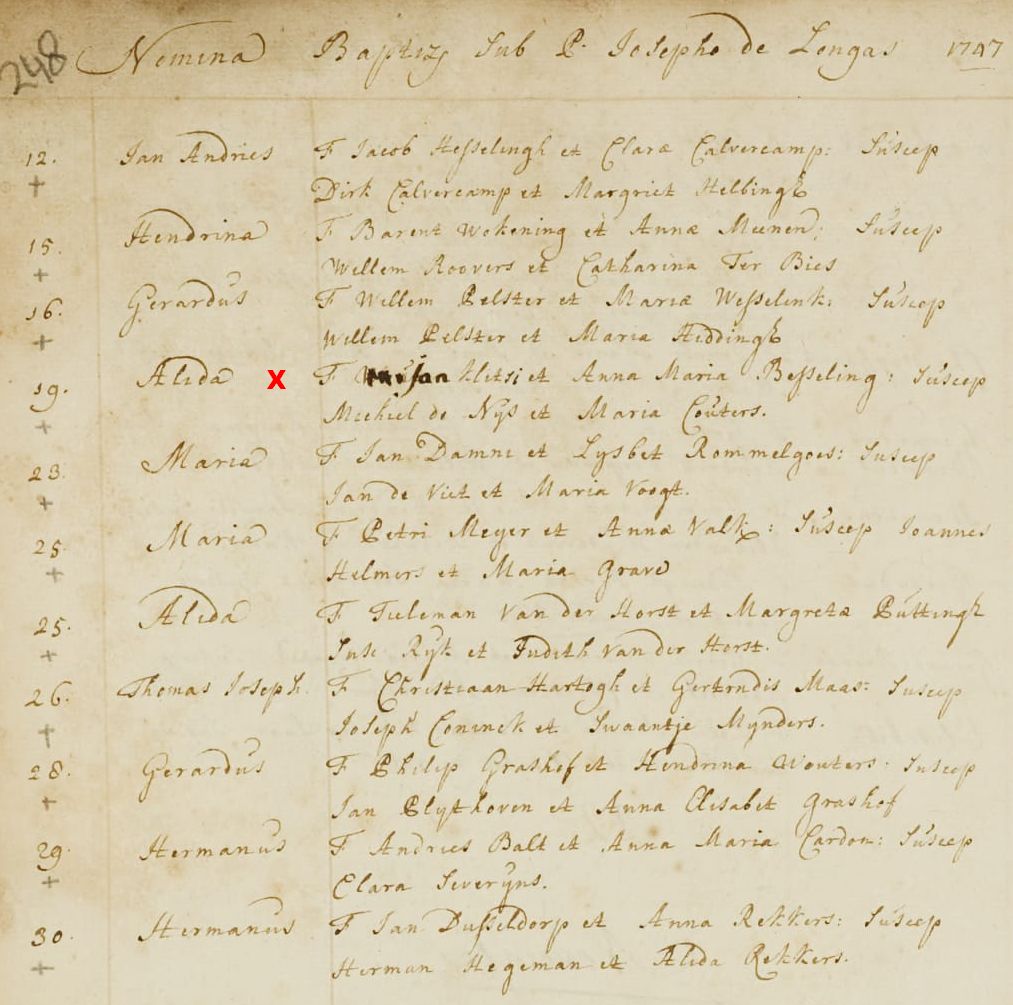 248 Nomina Baptiz Sub P. Josepho de Longas 1747
12. Jan Andries F Jacob Hesselingh et Claræ Calvercamp: Suscep
Dirk Calvercamp et Margriet Helbingh
15. Hendrina F Barent Wokening et Annæ Meenen: Suscep
Willem Roovers et Catharina Ter Bies
16. Gerardus F Willem Pelster et Mariæ Wesselink: Suscep
Willem Pelster et Maria Hiddingh
19. Alida X F Jan Kletsi et Anna Maria Besseling: Suscep
Michiel de Nijs et Maria Couters.
23. Maria F Jan Damni et Lysbet Rommelgoes: Suscep
Jan de Viet et Maria Voogt.
25. Maria F Petri Meyer et Annæ Valk: Suscep Joannes
Helmers et Maria Grave
25. Alida F Tieleman Van der Horst et Margretæ Puttingh
Rijk et Judith Van der Horst.
26. Thomas Joseph. F Christiaan Hartogh et Gertrudis Maas: Suscep
Joseph Coninck et Swaantje Mynders.
28. Gerardus F Philip Grashof et Hendrina Wouters: Suscep
Jan Plythoven et Anna Elisabet Grashof
29. Hermanus F Andries Balt et Anna Maria Cardon: Suscep
Clara Severyns.
30. Hermanus F Jan Dusseldorp et Anna Rekkers: Suscep
Herman Hegeman et Alida Rekkers.